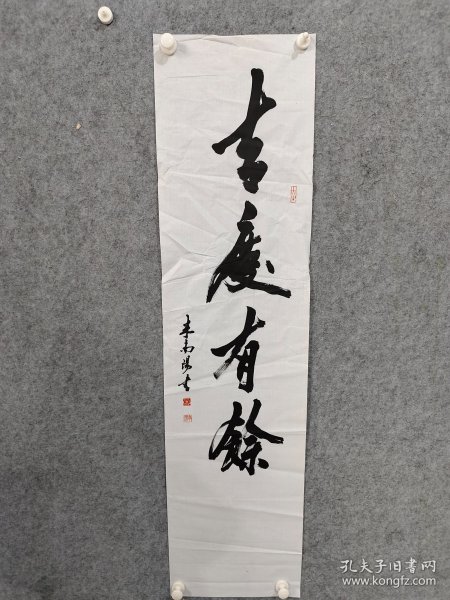 吉庆有餘
孔夫子旧书网
www.kongfz.com